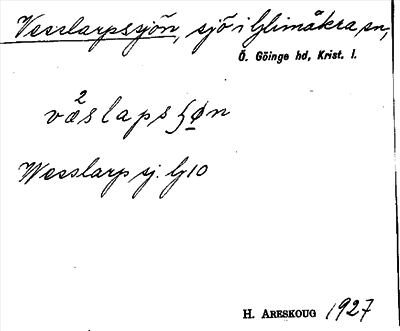 Vesslarpssjön, sjö i Glimåkra sn,
Ö. Göinge hd, Krist. l.
væ²slapsʃøn
Wesslarp sj. G10
H. Areskoug 1927